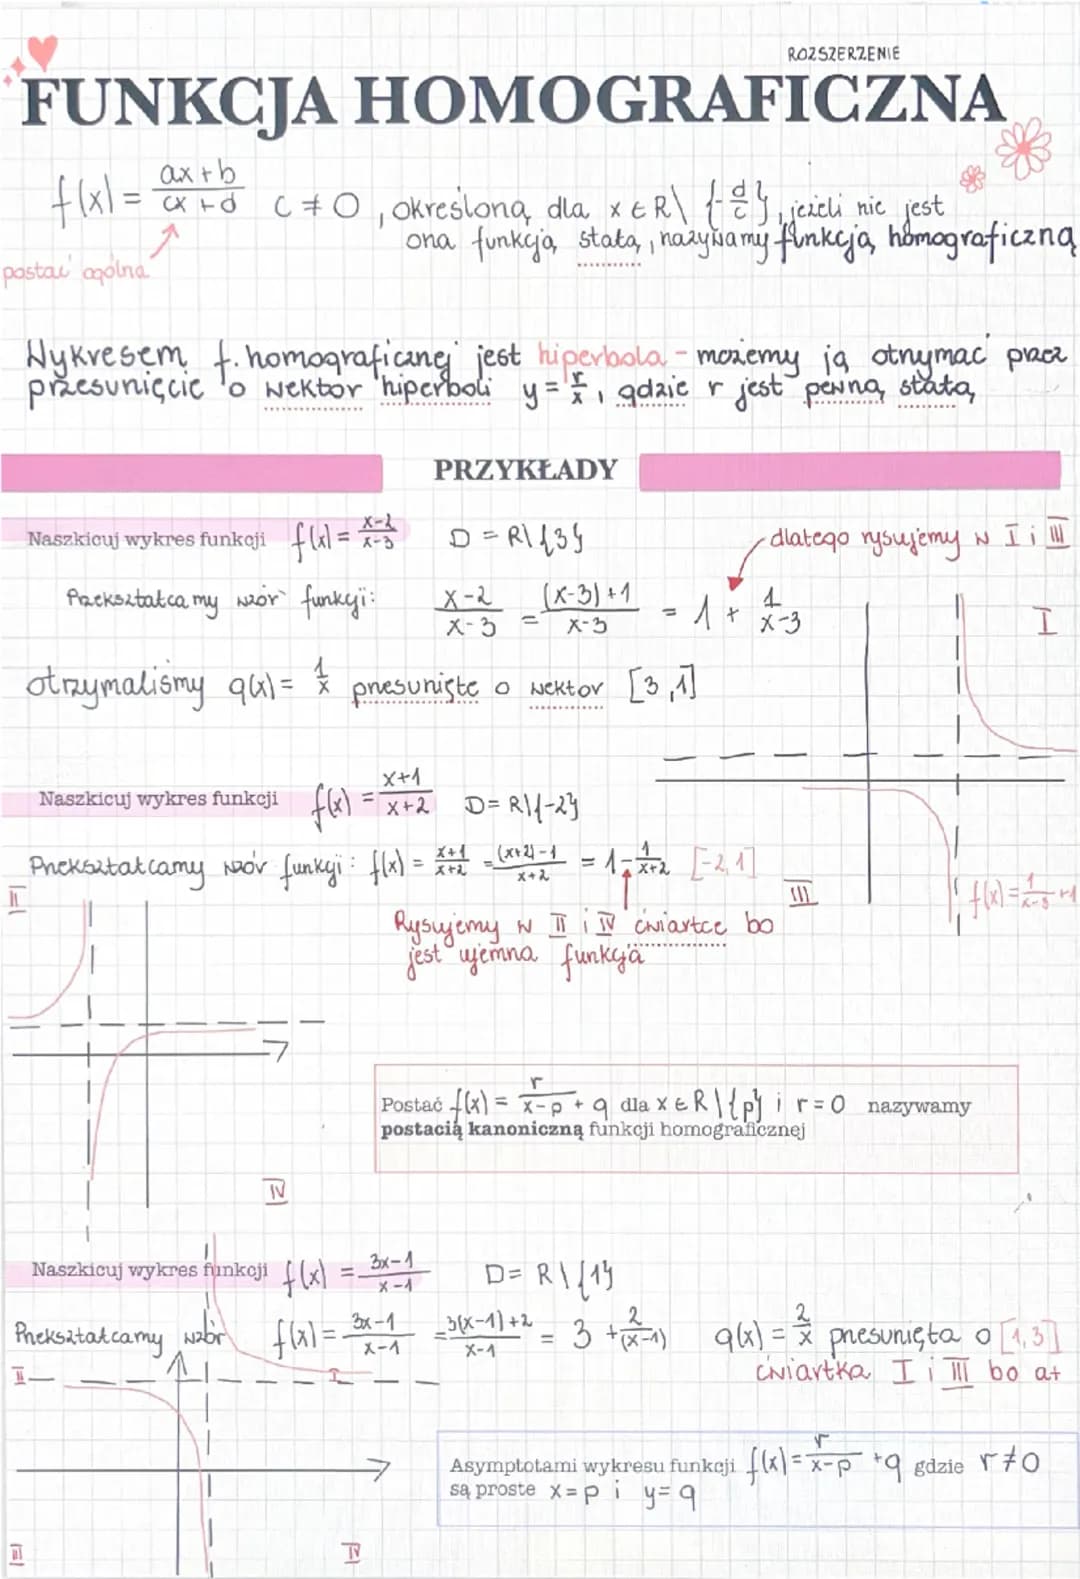 ROZSZERZENIE
FUNKCJA HOMOGRAFICZNA
f(x) = (ax+b)/(cx+d) c ≠ 0, określoną dla x ∈ R\{-d/c}, jeżeli nie jest
ona funkcją stałą, nazywamy funkcją homograficzną
postać ogólna
Wykresem f. homograficznej jest hiperbola - możemy ją otrzymać przez
przesunięcie o wektor hiperboli y = r/x, gdzie r jest pewną stałą
PRZYKŁADY
Naszkicuj wykres funkcji f(x) = (x-2)/(x-3) D = R\{3}
dlatego rysujemy w I i III
Przekształcamy wzór funkcji: (x-2)/(x-3) = ((x-3)+1)/(x-3) = 1 + 1/(x-3)
I
otrzymaliśmy g(x) = 1/x przesunięte o wektor [3,1]
Naszkicuj wykres funkcji f(x) = (x+1)/(x+2) D = R\{-2}
Przekształcamy wzór funkcji: f(x) = (x+1)/(x+2) = ((x+2)-1)/(x+2) = 1 - 1/(x+2) [-2,1]
II
III
f(x) = 1/(x-3) +1
Rysujemy w II i IV ćwiartce bo
jest ujemna funkcja
Postać f(x) = r/(x-p) + q dla x ∈ R\{p} i r = 0 nazywamy
postacią kanoniczną funkcji homograficznej
IV
Naszkicuj wykres funkcji f(x) = (3x-1)/(x-1) D = R\{1}
Przekształcamy wzór f(x) = (3x-1)/(x-1) = (3(x-1)+2)/(x-1) = 3 + 2/(x-1) g(x) = 2/x przesunięta o [1,3]
ćwiartka I i III bo a+
II
I
Asymptotami wykresu funkcji f(x) = r/(x-p) + q gdzie r ≠ 0
są proste x = p i y = q
III
IV